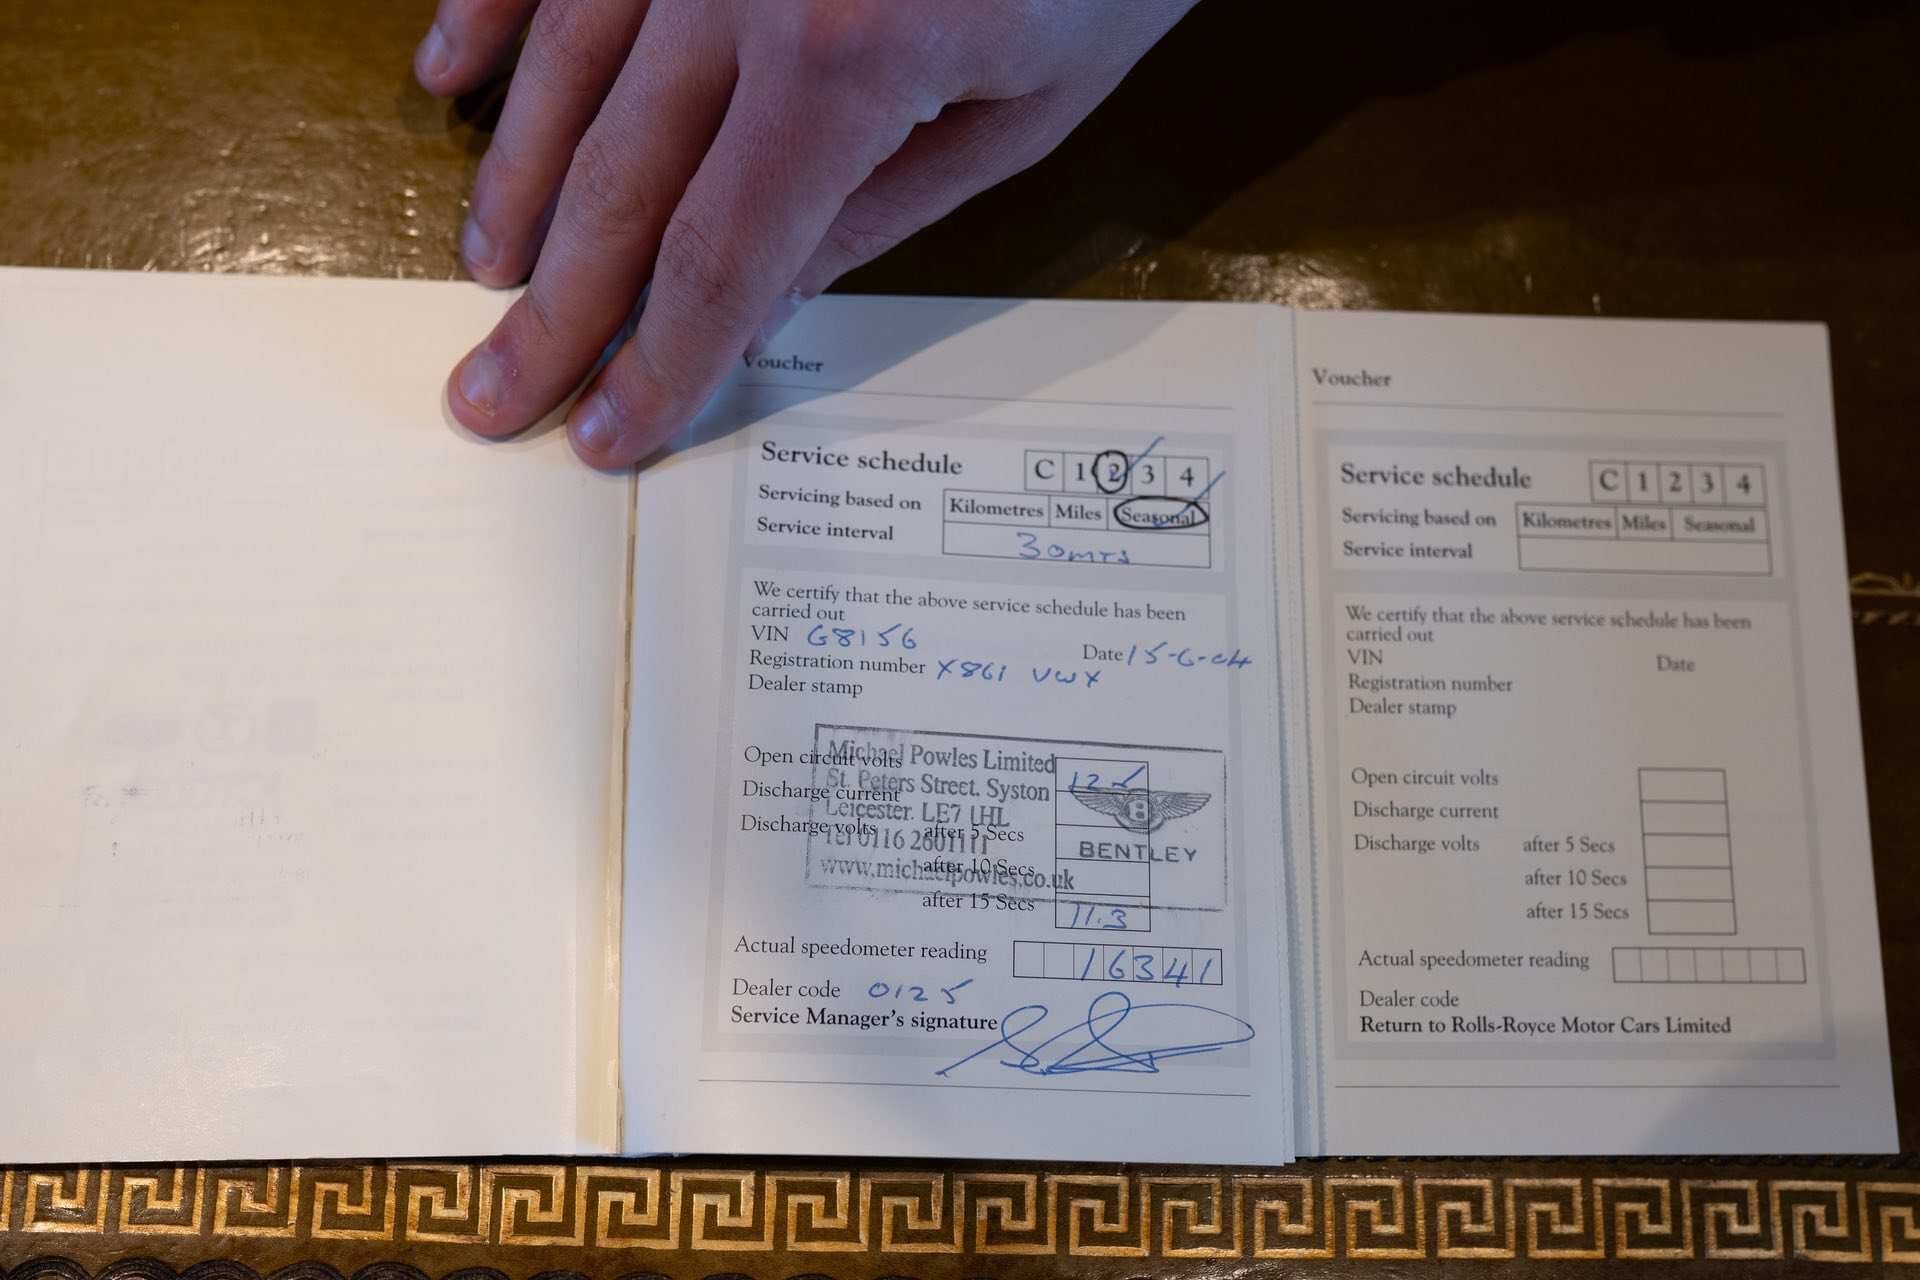 Voucher
Service schedule C 1 2 3 4
Servicing based on Kilometres Miles Seasonal
Service interval 30mTs
We certify that the above service schedule has been
carried out
VIN G8156 Date 15-6-04
Registration number X861 VWX
Dealer stamp
Michael Powles Limited
St. Peters Street. Syston
Leicester. LE7 1HL
Tel 0116 2601111
www.michaelpowles.co.uk
BENTLEY
Open circuit volts 12.
Discharge current
Discharge volts after 5 Secs
after 10 Secs
after 15 Secs 11.3
Actual speedometer reading 16341
Dealer code 0125
Service Manager's signature
Voucher
Service schedule C 1 2 3 4
Servicing based on Kilometres Miles Seasonal
Service interval
We certify that the above service schedule has been
carried out
VIN Date
Registration number
Dealer stamp
Open circuit volts
Discharge current
Discharge volts after 5 Secs
after 10 Secs
after 15 Secs
Actual speedometer reading
Dealer code
Return to Rolls-Royce Motor Cars Limited